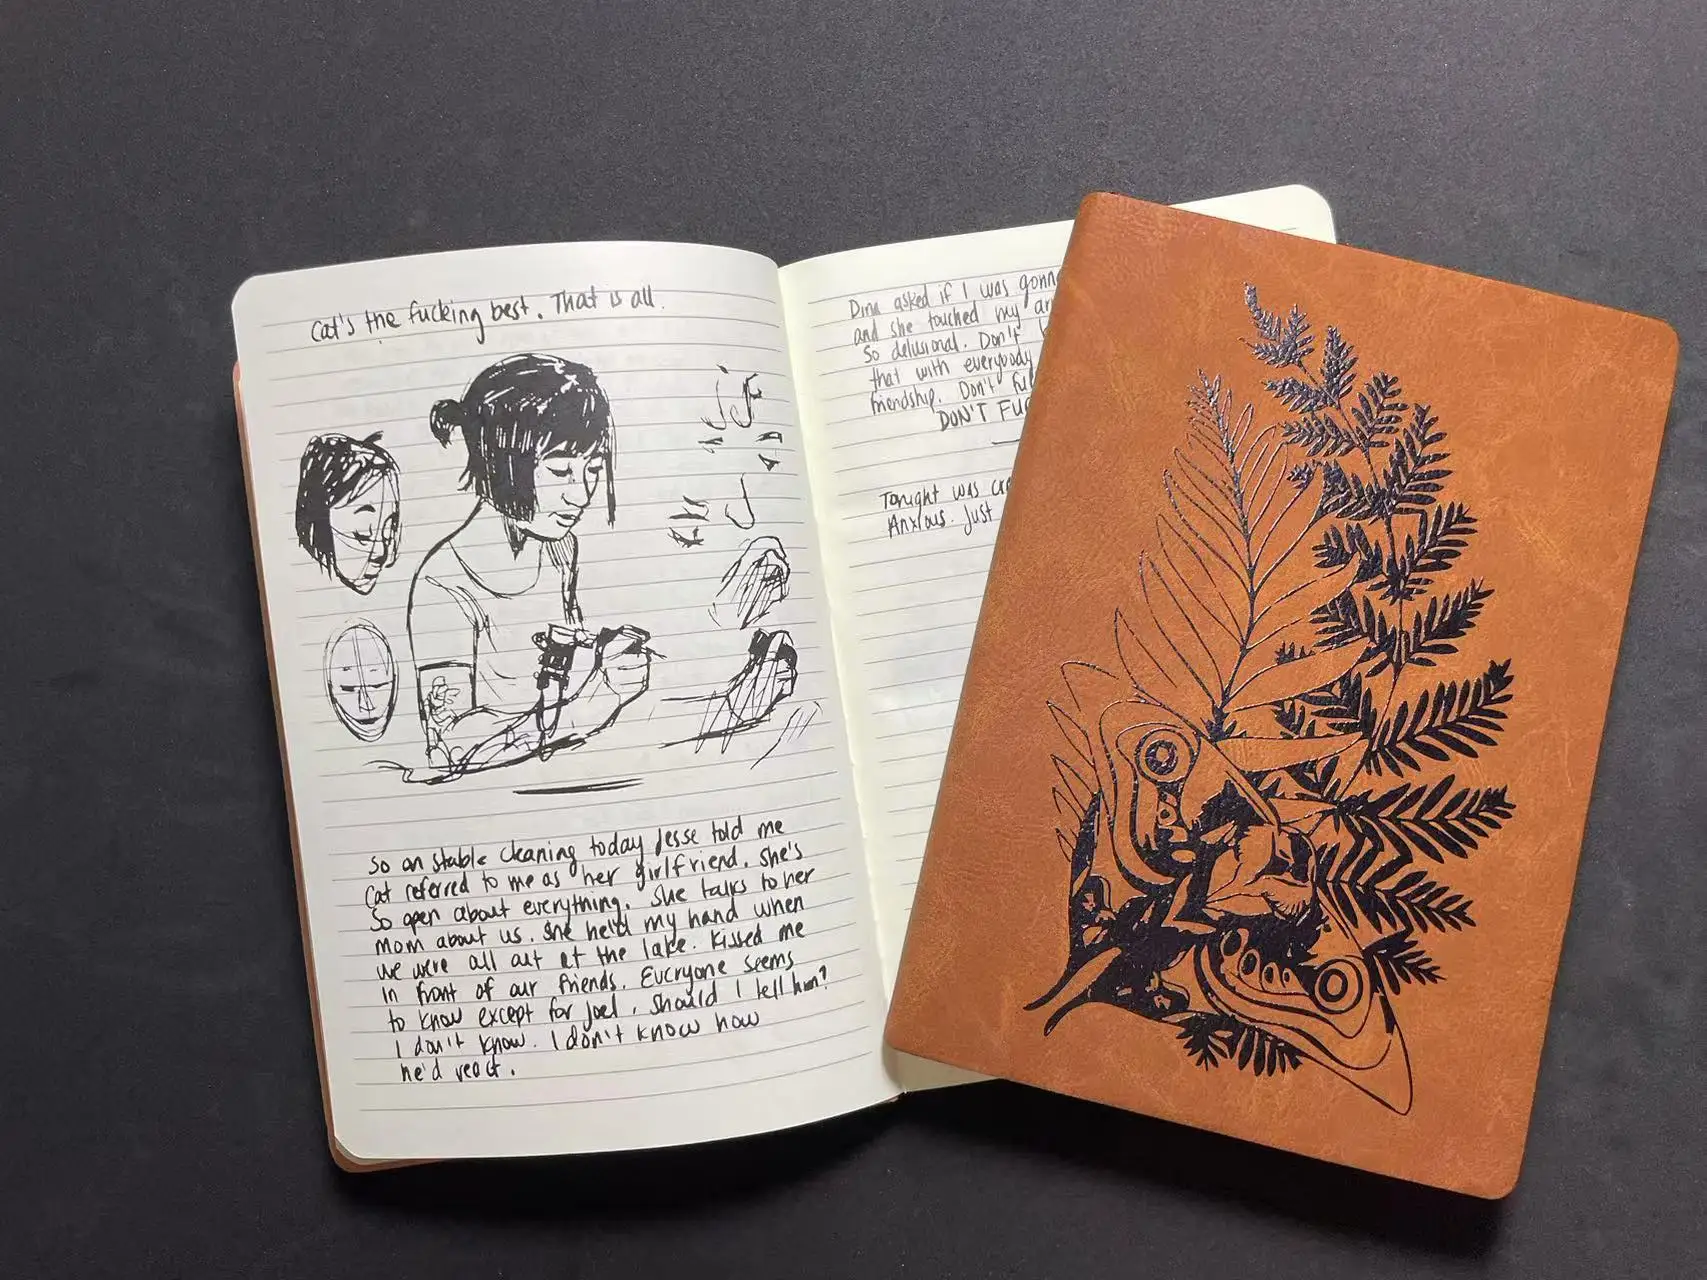 Cat's the fucking best. That is all.
So on stable cleaning today Jesse told me
Cat referred to me as her girlfriend. She's
So open about everything. She talks to her
Mom about us. She held my hand when
we were all out at the lake. Kissed me
in front of our friends. Everyone seems
to know except for Joel. Should I tell him?
I don't know. I don't know how
he'd react.
Dina asked if I was gonn
and she touched my ar
So delusional. Don't
that with everybody
friendship. Don't fu
DON'T FUC
Tonight was
Anxious. Just